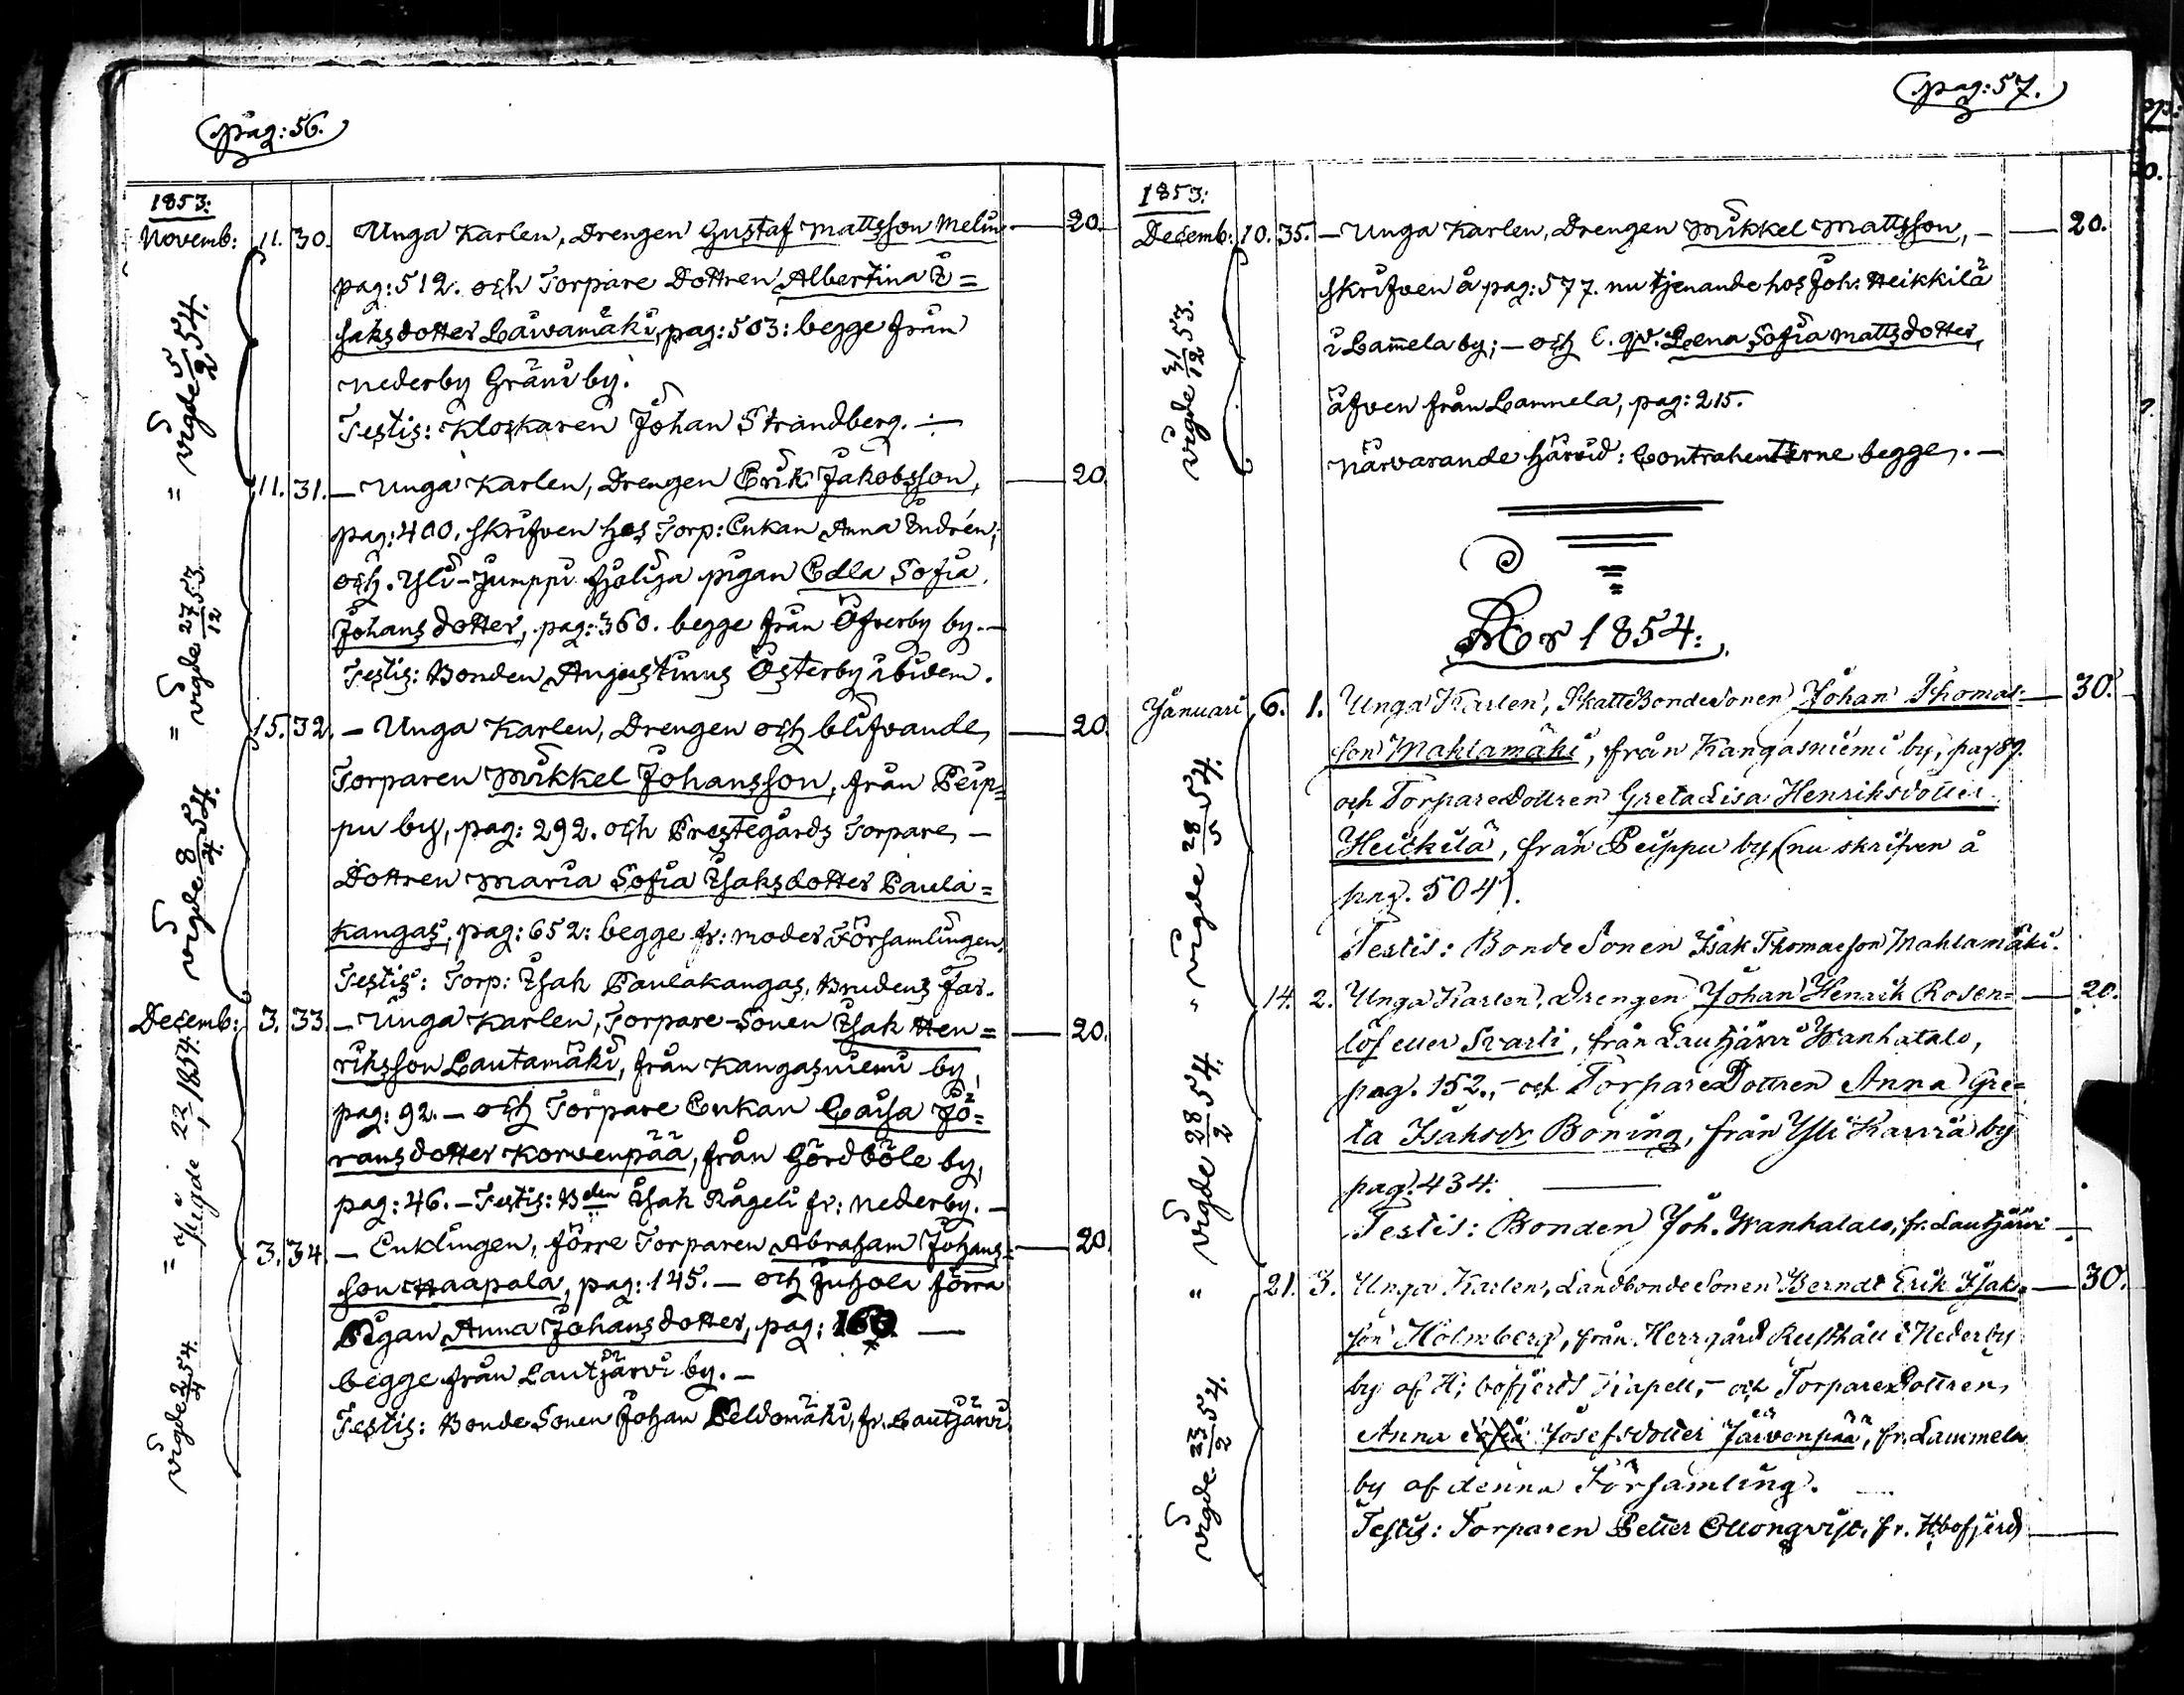 pag: 56.
1853:
Novemb: 11. 30. Unga Karlen, Drengen Gustaf Mattsson Melin — 20.
pag: 512. och Torpare Dottren Albertina I=
saksdotter Lawamäki, pag: 503: begge från
Nederby Gränd by.
Testis: Klockaren Johan Strandberg. ÷
vigde 5/2 54.
11. 31. — Unga Karlen, Drengen Erik Jakobsson, — 20.
pag: 400. skrifven hos Torp: Enkan Anna Indrén;
och. Yli-Jumppi Hjeliga pigan Edla Sofia
Johansdotter, pag: 360. begge från Öfverby by. —
Testis: Bonden Augustinus Österby ibidem.
= vigde 27/12 53.
15. 32. — Unga Karlen, Drengen och blifvande, — 20.
Torparen Mikkel Johansson, från Peip=
pu by, pag: 292. och Prestegårds Torpare, —
Dottren Maria Sofia Isaksdotter Paula=
kangas, pag: 652: begge fr: moder Församlingen.
Testis: Torp: Isak Paulakangas, Brudens Far.
= vigde 8/4 54.
Decemb: 3. 33. — Unga Karlen, Torpare-Sonen Isak Hen= — 20.
riksson Lautamäki, från Kangasniemi by,
pag: 92. — och Torpare Enkan Caisa Jö=
ransdotter Korvenpää, från Gördböle by,
pag: 46. — Testis: Bden Isak Rågeli fr: Nederby. —
= vigde 22/1 1854.
3. 34. — Enklingen, förre Torparen Abraham Johans= — 20.
son Haapala, pag: 145. — och Juhola förra
Pigan Anna Johansdotter, pag: 160. —
begge från Lautjärvi by. —
Testis: Bonde Sonen Johan Peldomäki, fr. Lautjärvi.
vigde 2/4 54.
pag: 57.
1853:
Decemb: 10. 35. — Unga Karlen, Drengen Mikkel Mattsson, — — 20.
skrifven å pag: 577. nu tjenande hos Joh: Heikkilä
i Lam̅ela by; — och l. qv. Leena Sofia Mattsdotter,
äfven från Lammela, pag: 215.
Närvarande härvid: Contrahenterne begge. —
vigde 31/12 53.
År 1854:
Januari 6. 1. Unga Karlen, SkatteBondeSonen Johan Thomas- — 30.
son Mahlamäki, från Kangasniemi by, pag 89.
och TorpareDottren Greta Lisa Henriksdotter
Heickilä, från Peippu by, (nu skrifven å
pag. 504).
Testis: BondeSonen Isak Thomasson Mahlamäki.
" vigde 28/5 54.
14. 2. Unga Karlen, Drengen Johan Henrik Rosen= — 20.
löf eller Svarti, från Lautjärvi Wanhatalo,
pag. 152., — och TorpareDottren Anna Gre=
ta Isaksdr Böning, från Yli Kaurra by
pag. 434. —
Testis: Bonden Joh. Wanhatalo, fr. Lautjärvi —
vigde 28/2 54.
" 21. 3. Unga Karlen, LandbondeSonen Berndt Erik Isaks- — 30.
son Holmberg, från Herrgård Rusthåll i Nederby
by af H: bofjerds Kapell, — och TorpareDottren
Anna Sofia Josefsdotter Järvenpää, fr. Lammela
by af denna Församling.
Testis: Torparen Petter Ollonqvist, fr. Hbofjerd —
vigde 23/2 54.